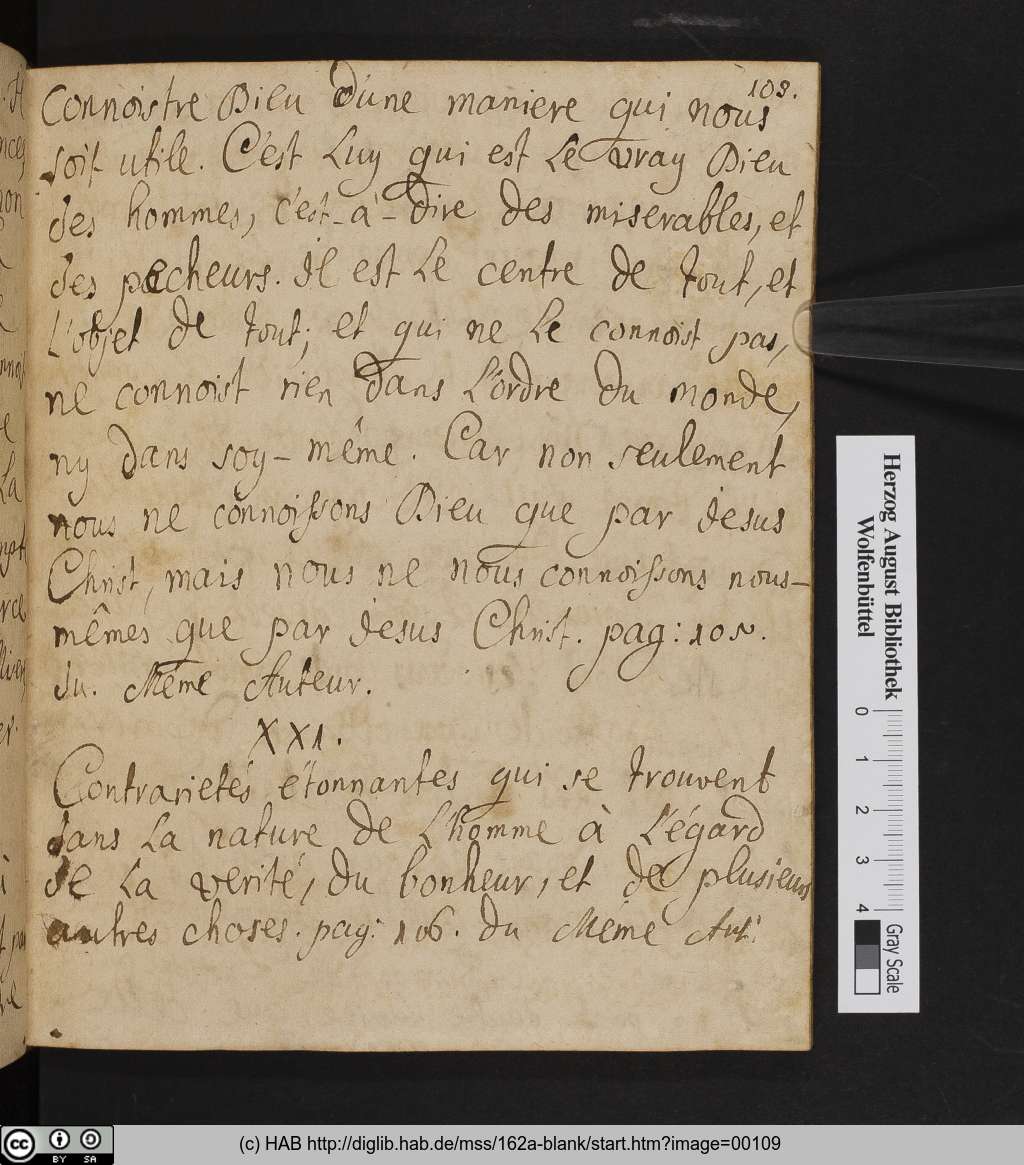 108.
Connoistre Dieu d'une maniere qui nous
soit utile. C'est Luy qui est Le vray Dieu
des hommes, c'est-à-dire des miserables, et
des pecheurs. il est Le centre de tout, et
L'objet de tout; et qui ne Le connoist pas,
ne connoist rien dans L'ordre du monde,
ny dans soy-même. Car non seulement
nous ne connoissons Dieu que par Jesus
Christ, mais nous ne nous connoissons nous-
mêmes que par Jesus Christ. pag:
du. Même Auteur.
XXI.
Contrarietés étonnantes qui se trouvent
dans La nature de L'homme à L'égard
de La verité, du bonheur, et de plusieurs
autres choses. pag: 106. du Même Aut:
Herzog August Bibliothek
Wolfenbüttel
0 1 2 3 4
Gray Scale
cc BY SA
(c) HAB http://diglib.hab.de/mss/162a-blank/start.htm?image=00109